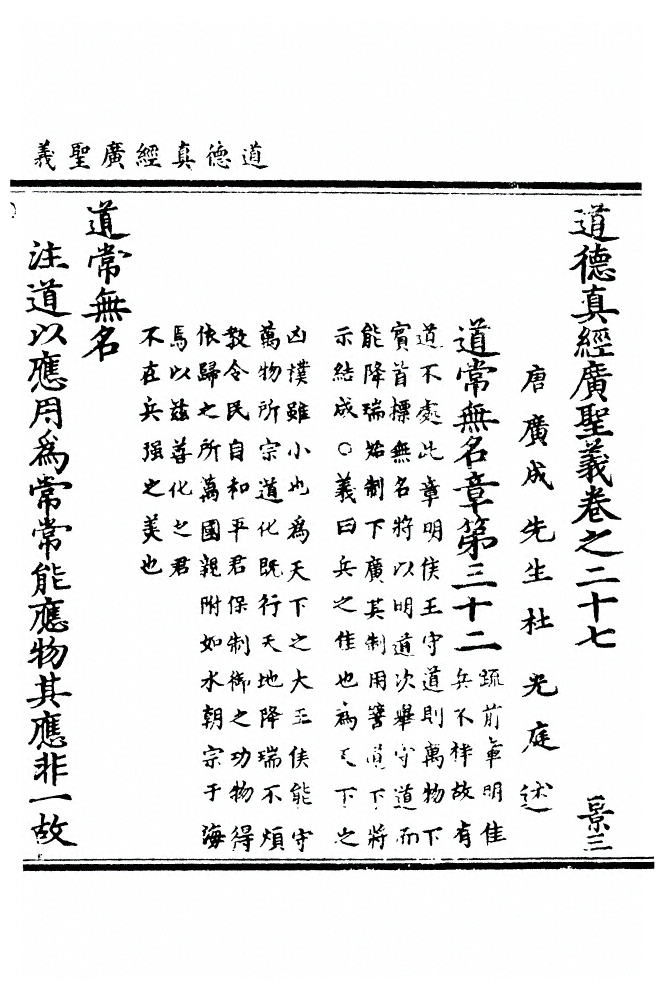 道德真經廣聖義
道德真經廣聖義卷之二十七 景三
唐廣成先生杜光庭述
道常無名章第三十二 疏前章明佳
兵不祥故有
道不處此章明侯王守道則萬物下
賓首標無名將以明道次舉守道而
能降瑞始制下廣其制用譬道下將
示結成○義曰兵之佳也為天下之
凶樸雖小也為天下之大王侯能守
萬物所宗道化既行天地降瑞不煩
教令民自和平君保制御之功物得
依歸之所萬國親附如水朝宗于海
焉以茲尊化之君
不在兵强之美也
道常無名
注道以應用為常常能應物其應非一故